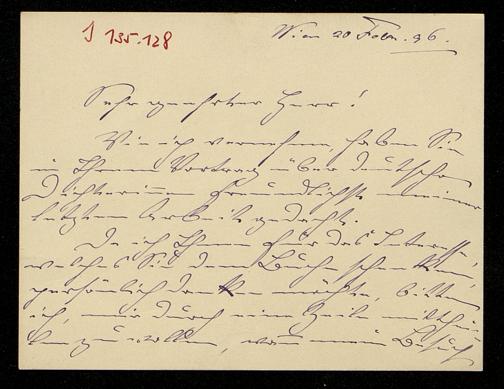 I 135.128
Wien 20 Febr. 96.
Sehr geehrter Herr!
Wie ich vernehme, haben Sie
in Ihrem Vortrag über deutsche
Dichterinnen freundlichst meiner
letzten Arbeit gedacht.
Da ich Ihnen für das Interesse,
welches Sie dem Buche schenken,
persönlich danken möchte, bitte
ich, mir durch eine Zeile mitthei-
len zu wollen, wann mein Besuch